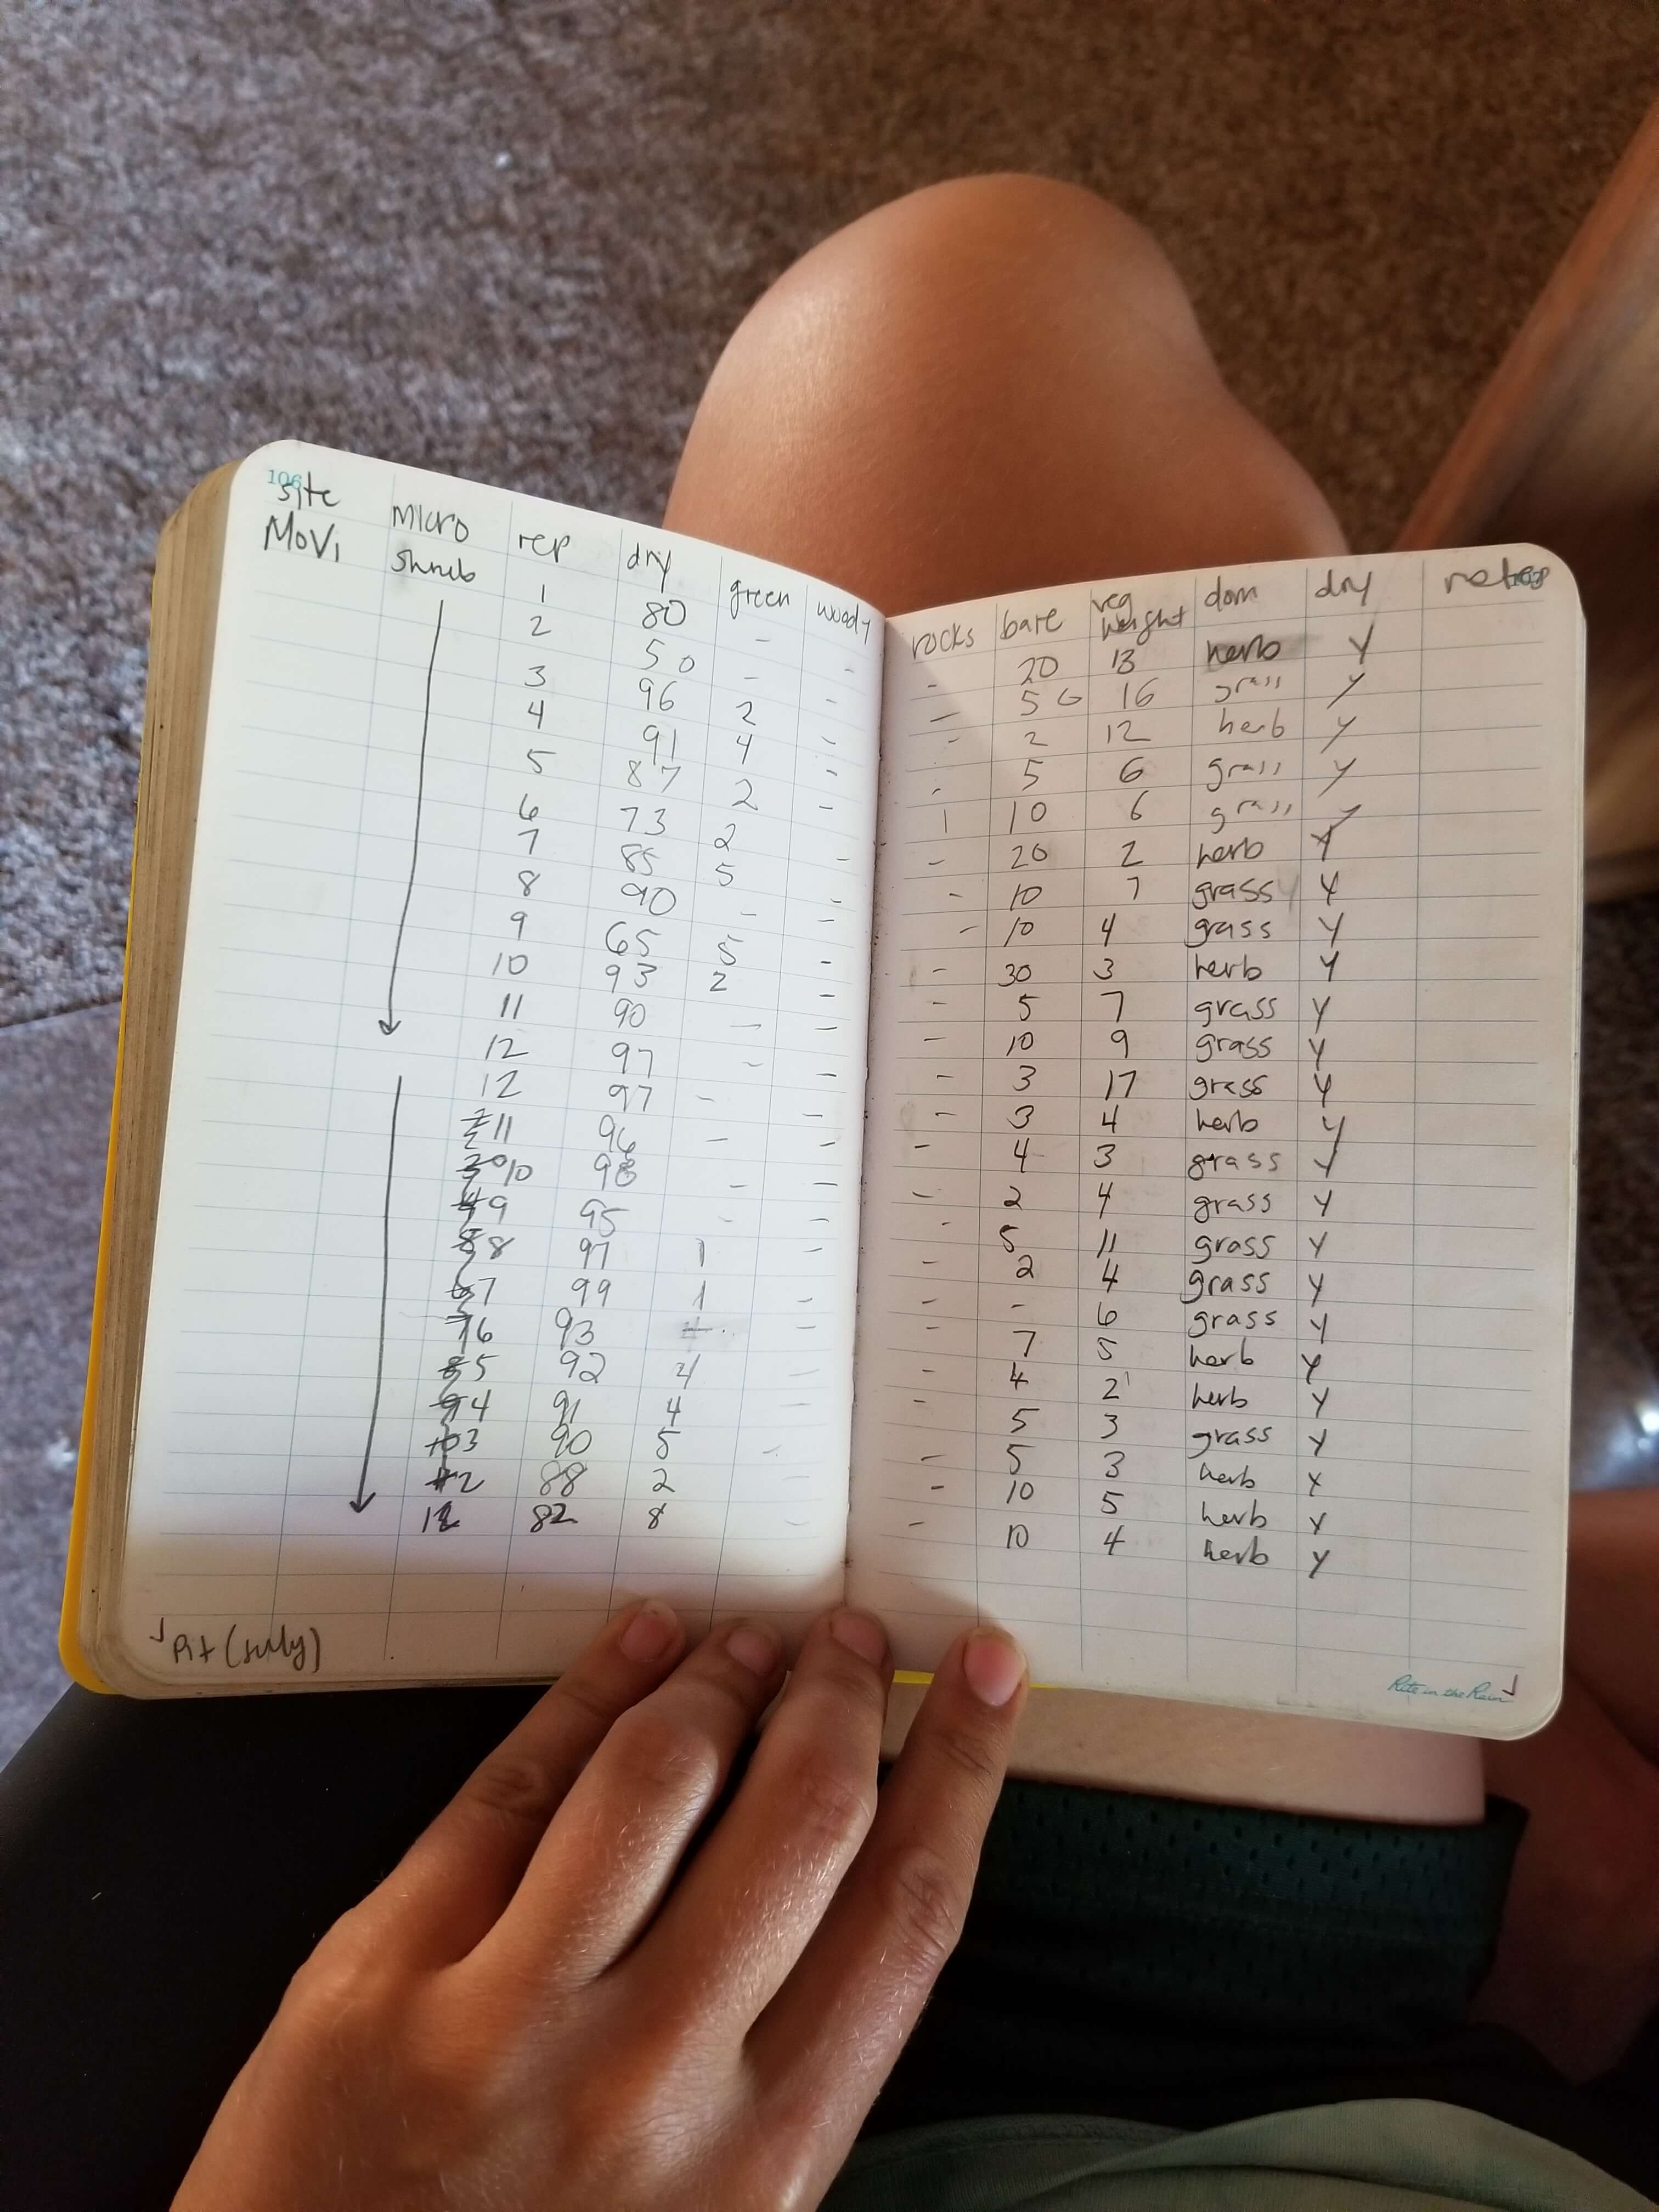 106
site micro rep dry green woody
MOV1 shrub 1 80 - -
2 50 - -
3 96 2 -
4 91 4 -
5 87 2 -
6 73 2 -
7 85 5 -
8 90 - -
9 65 5 -
10 93 2 -
11 90 - -
12 97 - -
12 97 - -
11 96 - -
10 98 - -
9 95 - -
8 97 1 -
7 99 1 -
6 93 -
5 92 4 -
4 91 4 -
3 90 5 -
2 88 2 -
1 82 8 -
Pit (July)
rocks bare veg height dom dry notes
- 20 13 herb y
- 50 16 grass y
- 2 12 herb y
- 5 6 grass y
1 10 6 grass y
- 20 2 herb y
- 10 7 grass y
- 10 4 grass y
- 30 3 herb y
- 5 7 grass y
- 10 9 grass y
- 3 17 grass y
- 3 4 herb y
- 4 3 grass y
- 2 4 grass y
- 5 11 grass y
- 2 4 grass y
- - 6 grass y
- 7 5 herb y
- 4 2 herb y
- 5 3 grass y
- 5 3 herb y
- 10 5 herb y
- 10 4 herb y
Rite in the Rain